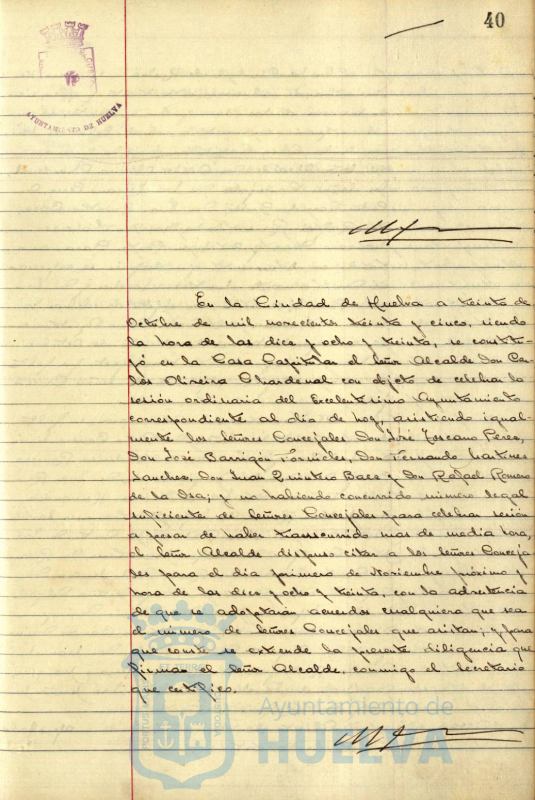 40
AYUNTAMIENTO DE HUELVA
En la Ciudad de Huelva a treinta de
Octubre de mil novecientos treinta y cinco, siendo
la hora de las diez y ocho y treinta, se constitu-
yó en la Casa Capitular el señor Alcalde Don Car-
los Oliveira Chardenal con objeto de celebrar la
sesión ordinaria del Excelentísimo Ayuntamiento
correspondiente al día de hoy, asistiendo igual-
mente los señores Concejales Don José Toscano Perez,
Don José Barrigón Fornieles, Don Fernando Martinez
Sanchez, Don Juan Quintero Baez y Don Rafael Romero
de la Osa; y no habiendo concurrido número legal
suficiente de señores Concejales para celebrar sesión
a pesar de haber transcurrido mas de media hora,
el señor Alcalde dispuso citar a los señores Conceja
les para el día primero de Noviembre próximo y
hora de las diez y ocho y treinta, con la advertencia
de que se adoptarán acuerdos cualquiera que sea
el número de señores Concejales que asistan; y para
que conste se extiende la presente diligencia que
firman el señor Alcalde, conmigo el Secretario
que certifico.
Ayuntamiento de
HUELVA